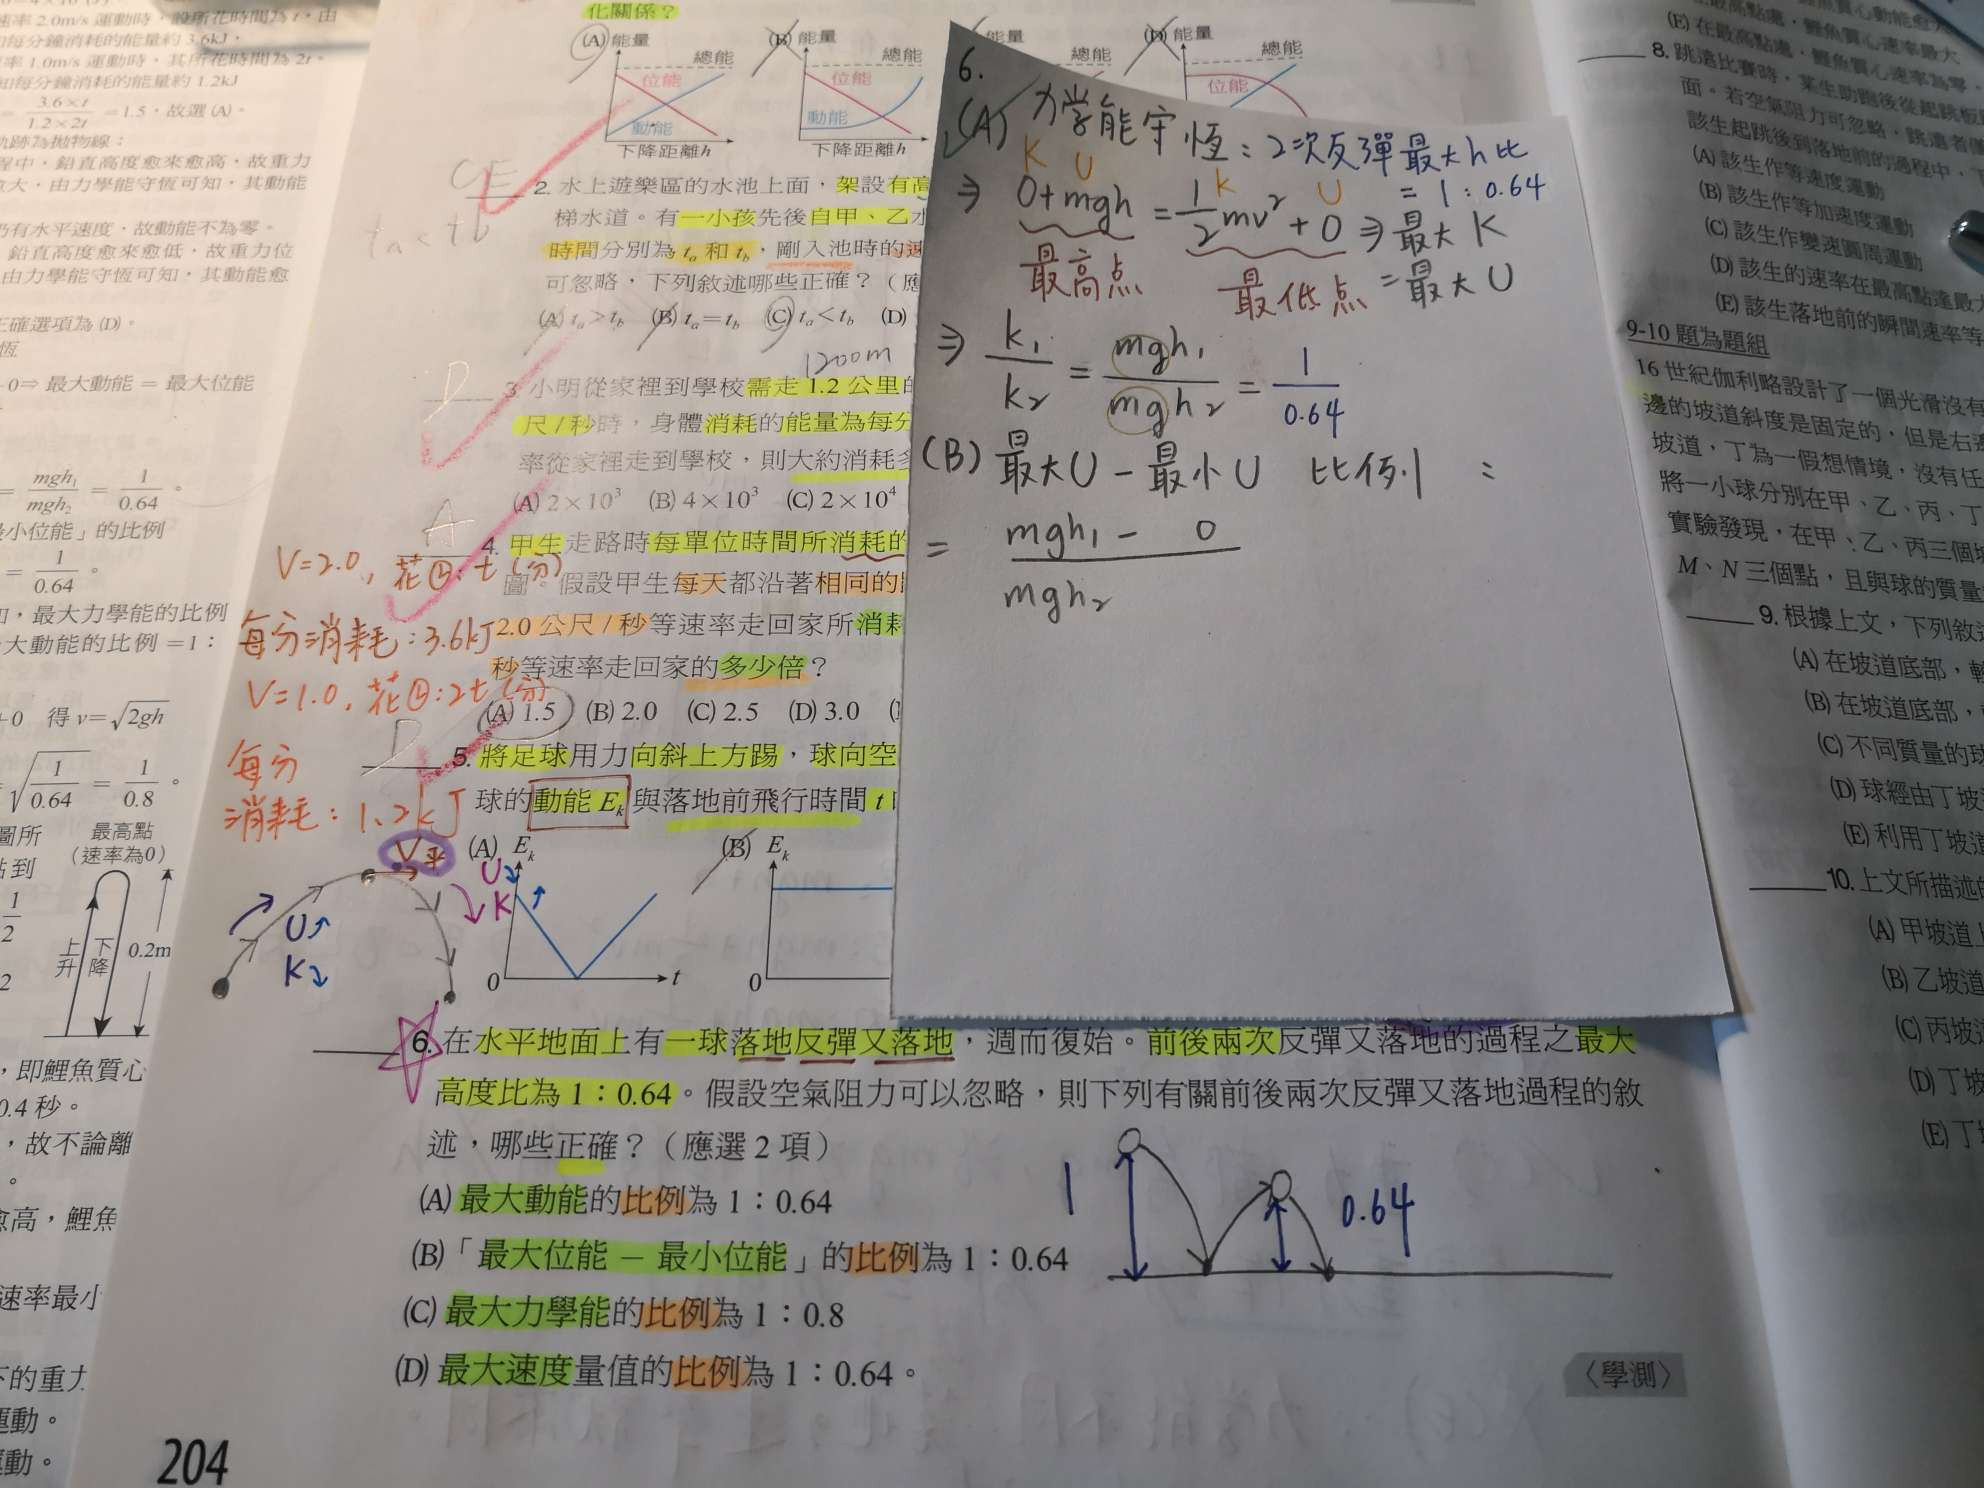 速率 2.0m/s 運動時，設所花時間為 t，由
每分鐘消耗的能量約 3.6kJ，
率 1.0m/s 運動時，其所花時間為 2t，
知每分鐘消耗的能量約 1.2kJ
3.6×t / 1.2×2t = 1.5，故選 (A)。
軌跡為拋物線：
程中，鉛直高度愈來愈高，故重力
大，由力學能守恆可知，其動能
仍有水平速度，故動能不為零。
鉛直高度愈來愈低，故重力位
由力學能守恆可知，其動能愈
正確選項為 (D)。
恆
0⇒ 最大動能 = 最大位能
= mgh₁ / mgh₂ = 1 / 0.64 。
最小位能」的比例
= 1 / 0.64 。
，最大力學能的比例
大動能的比例 =1：
+0 得 v=√2gh
√1/0.64 = 1/0.8 。
圖所
點到
1/2
最高點
（速率為0）
上升
下降
0.2m
，即鯉魚質心
0.4 秒。
，故不論離
。
愈高，鯉魚
速率最小
下的重力
運動。
運動。
204
化關係？
(A) 能量
總能
位能
動能
下降距離h
(B) 能量
總能
位能
動能
下降距離h
總能
(D) 能量
總能
位能
CE
2. 水上遊樂區的水池上面，架設有高
梯水道。有一小孩先後自甲、乙水
ta < tb
時間分別為 tₐ 和 t_b，剛入池時的速
可忽略，下列敘述哪些正確？（應
(A) tₐ > t_b (B) tₐ = t_b (C) tₐ < t_b (D)
1200m
D
3. 小明從家裡到學校需走 1.2 公里的
尺 / 秒時，身體消耗的能量為每分
率從家裡走到學校，則大約消耗多
(A) 2×10³ (B) 4×10³ (C) 2×10⁴
A
4. 甲生走路時每單位時間所消耗的
圖。假設甲生每天都沿著相同的
2.0 公尺 / 秒等速率走回家所消耗
秒等速率走回家的多少倍？
(A) 1.5 (B) 2.0 (C) 2.5 (D) 3.0
V=2.0, 花㊐: t (分)
每分消耗: 3.6kJ
V=1.0, 花㊐: 2t (分)
每分
消耗: 1.2kJ
D
5. 將足球用力向斜上方踢，球向空
球的動能 Eₖ 與落地前飛行時間 t
V平
U↑
K↓
U↓
K↑
(A) Eₖ
0
t
(B) Eₖ
0
6. 在水平地面上有一球落地反彈又落地，週而復始。前後兩次反彈又落地的過程之最大
高度比為 1：0.64。假設空氣阻力可以忽略，則下列有關前後兩次反彈又落地過程的敘
述，哪些正確？（應選 2 項）
(A) 最大動能的比例為 1：0.64
(B)「最大位能 － 最小位能」的比例為 1：0.64
(C) 最大力學能的比例為 1：0.8
(D) 最大速度量值的比例為 1：0.64。
〈學測〉
1
0.64
6.
(A) 力学能守恆：2次反彈最大h比
= 1 : 0.64
K U
⇒ 0+mgh = 1/2 mv² + 0 ⇒ 最大 K
K U
最高点 最低点 = 最大 U
⇒ k₁ / k₂ = mgh₁ / mgh₂ = 1 / 0.64
(B) 最大U － 最小U 比例 =
= mgh₁ - 0
mgh₂
(E) 在最高點處，鯉魚質心速率最大
8. 跳遠比賽時，某生助跑後從起跳板
面。若空氣阻力可忽略，跳遠者僅
該生起跳後到落地前的過程中，下
(A) 該生作等速度運動
(B) 該生作等加速度運動
(C) 該生作變速圓周運動
(D) 該生的速率在最高點達最大
(E) 該生落地前的瞬間速率等
9-10 題為題組
16 世紀伽利略設計了一個光滑沒有
邊的坡道斜度是固定的，但是右邊
坡道，丁為一假想情境，沒有任
將一小球分別在甲、乙、丙、丁
實驗發現，在甲、乙、丙三個坡
M、N 三個點，且與球的質量
9. 根據上文，下列敘述
(A) 在坡道底部，輕
(B) 在坡道底部，
(C) 不同質量的球
(D) 球經由丁坡
(E) 利用丁坡道
10. 上文所描述的
(A) 甲坡道上
(B) 乙坡道
(C) 丙坡道
(D) 丁坡
(E) 丁